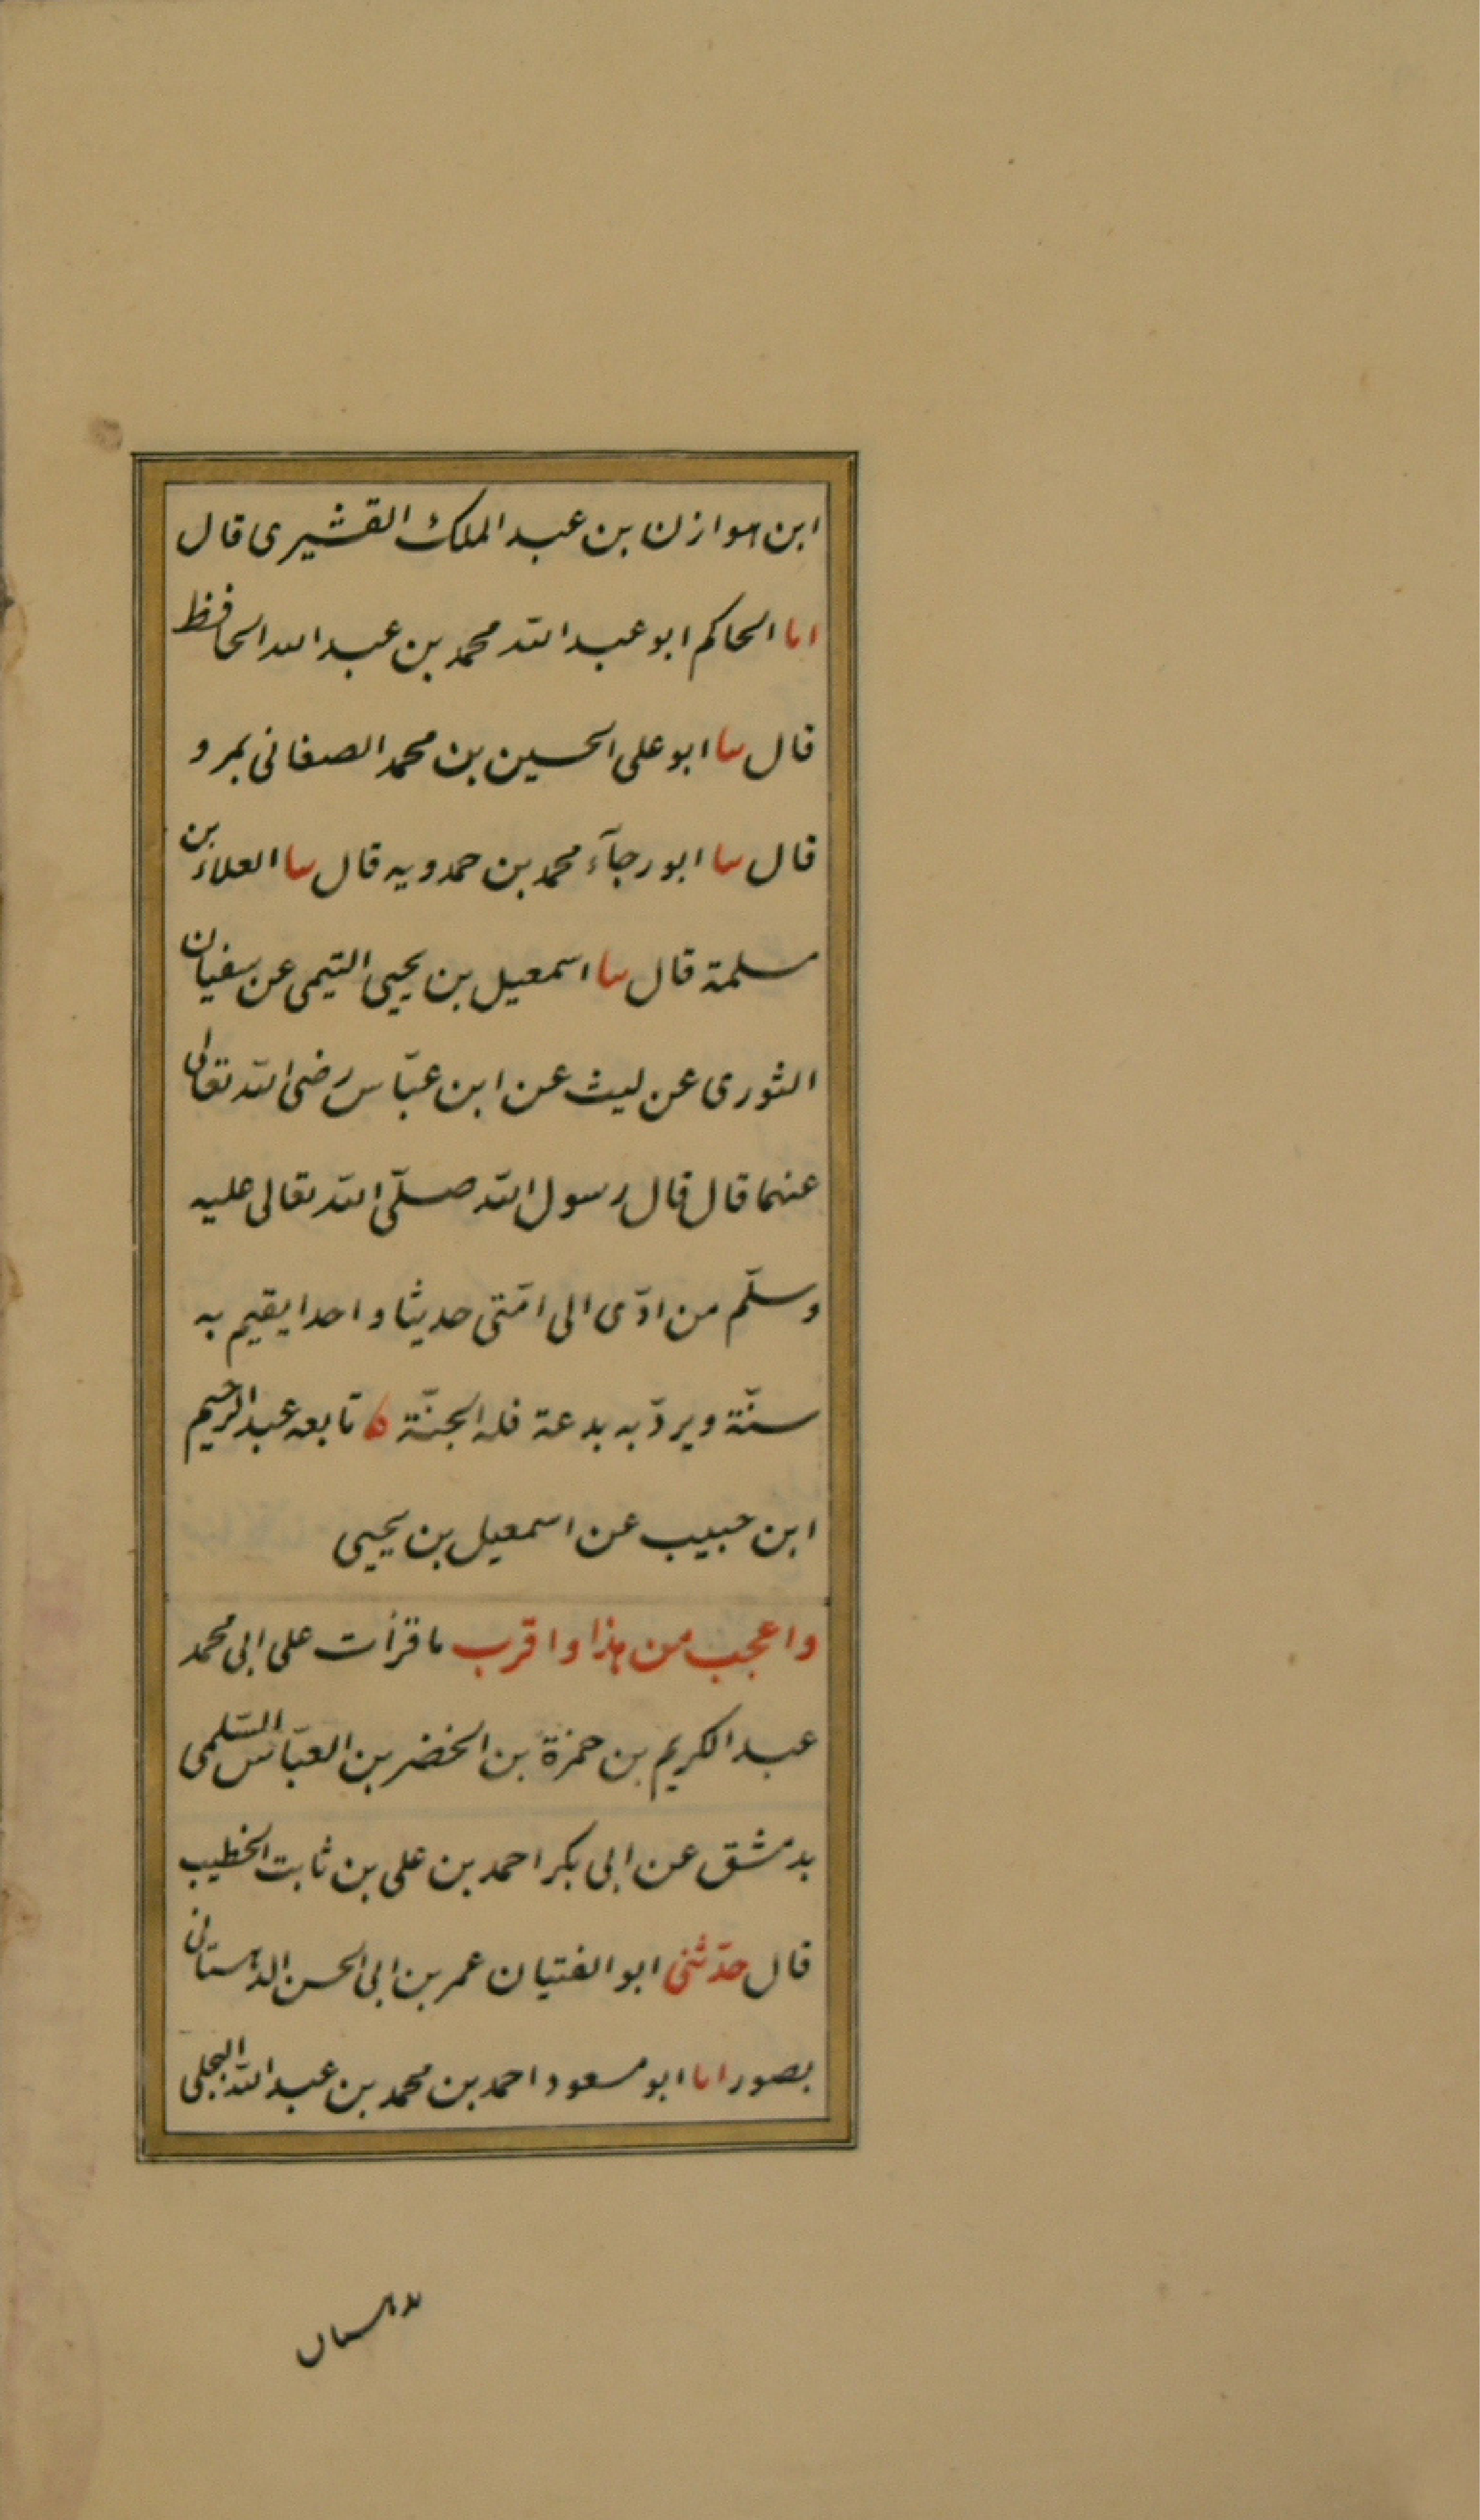 ابن هوازن بن عبد الملك القشيرى قال
انا الحاكم ابو عبد الله محمد بن عبد الله الحافظ
قال سا ابو على الحسين بن محمد الصغانى بمرو
قال سا ابو رجآء محمد بن حمدويه قال سا العلاء بن
مسلمة قال سا اسمعيل بن يحيى التيمى عن سفيان
الثورى عن ليث عن ابن عبّاس رضى الله تعالى
عنهما قال قال رسول الله صلّى الله تعالى عليه
وسلّم من ادّى الى امّتى حديثا واحدا يقيم به
سنّة ويردّ به بدعة فله الجنّة تابعه عبد الرحيم
ابن حبيب عن اسمعيل بن يحيى
واعجب من هذا واقرب ما قرأت على ابى محمد
عبد الكريم بن حمزة بن الخضر بن العبّاس السّلمى
بدمشق عن ابى بكر احمد بن على بن ثابت الخطيب
قال حدّثنى ابو الفتيان عمر بن ابى الحسن الدهستانى
بصور انا ابو مسعود احمد بن محمد بن عبد الله البجلى